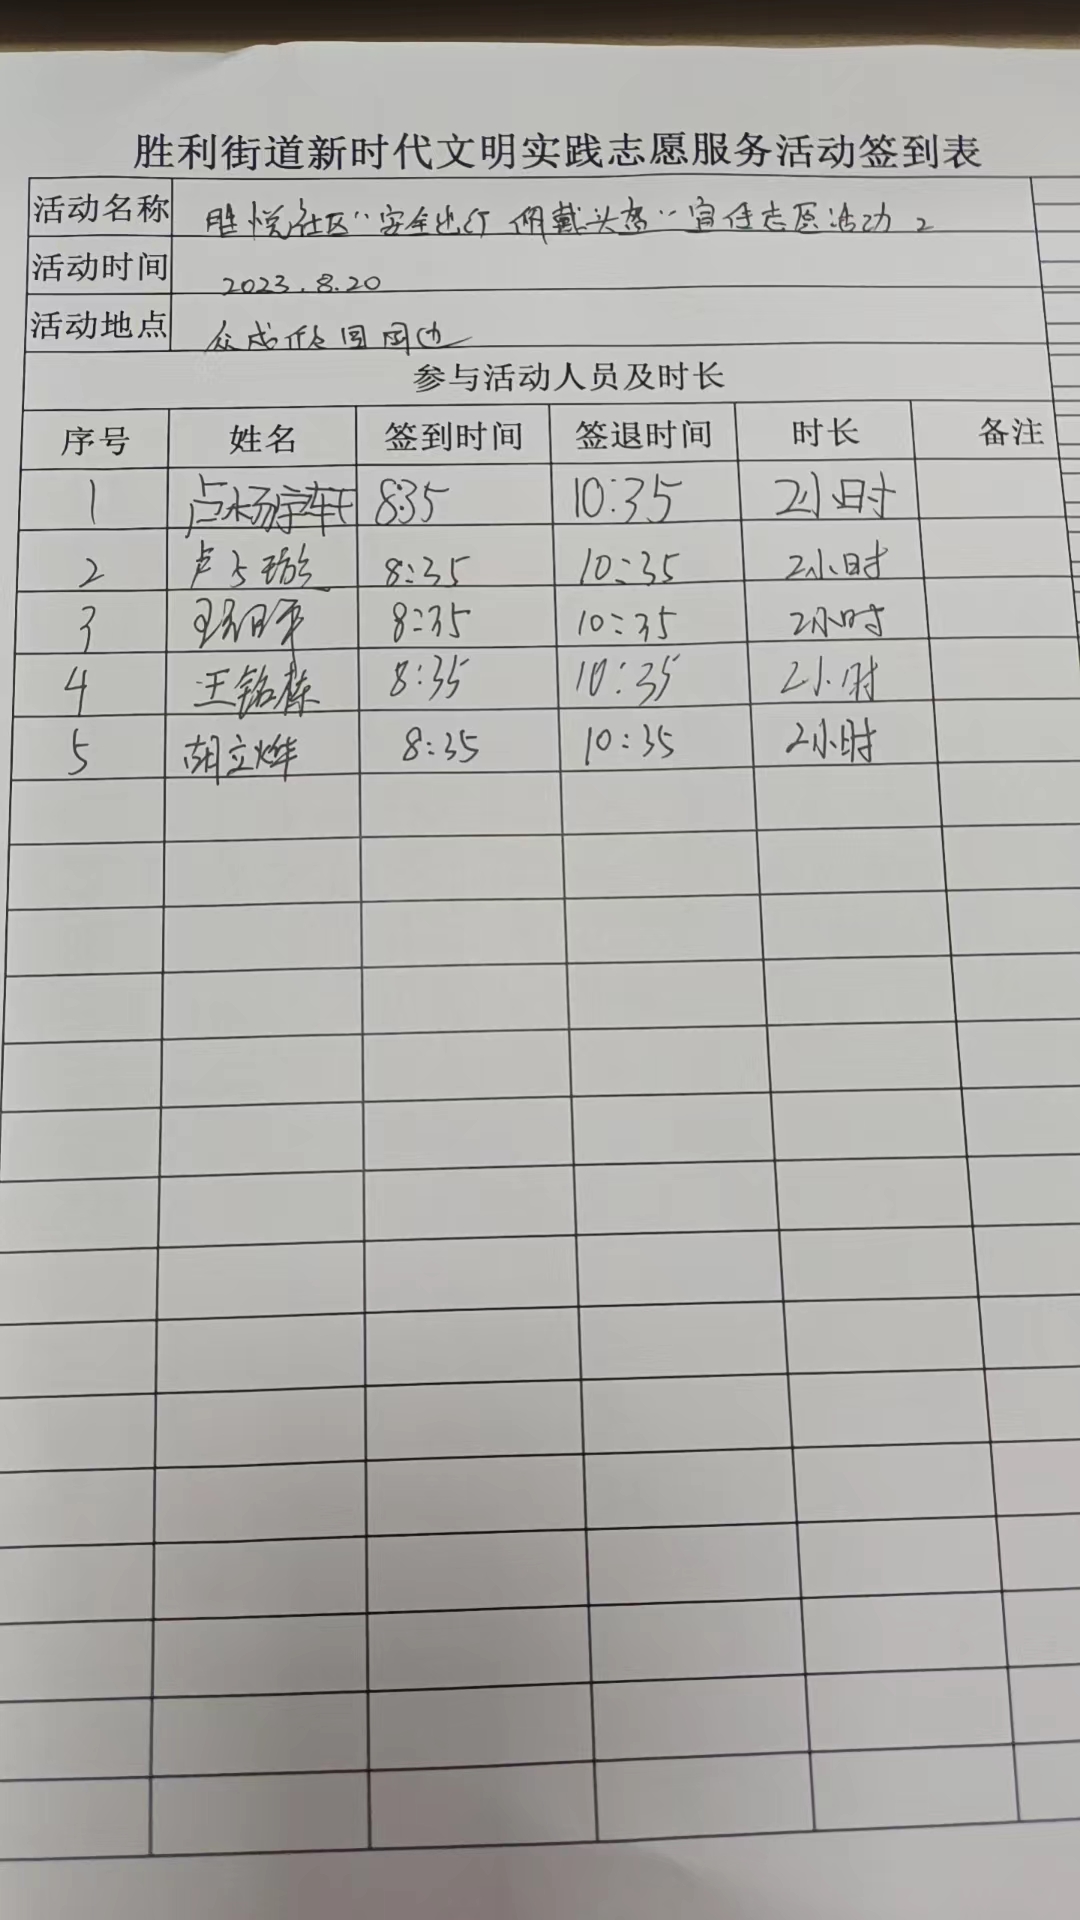 胜利街道新时代文明实践志愿服务活动签到表
活动名称 胜悦社区"安全出行 佩戴头盔"宣传志愿活动 2
活动时间 2023.8.20
活动地点 众成 园周边
参与活动人员及时长
序号 姓名 签到时间 签退时间 时长 备注
1 卢杨宇轩 8:35 10:35 2小时
2 卢 璇 8:35 10:35 2小时
3 8:35 10:35 2小时
4 王铭栋 8:35 10:35 2小时
5 胡立烨 8:35 10:35 2小时